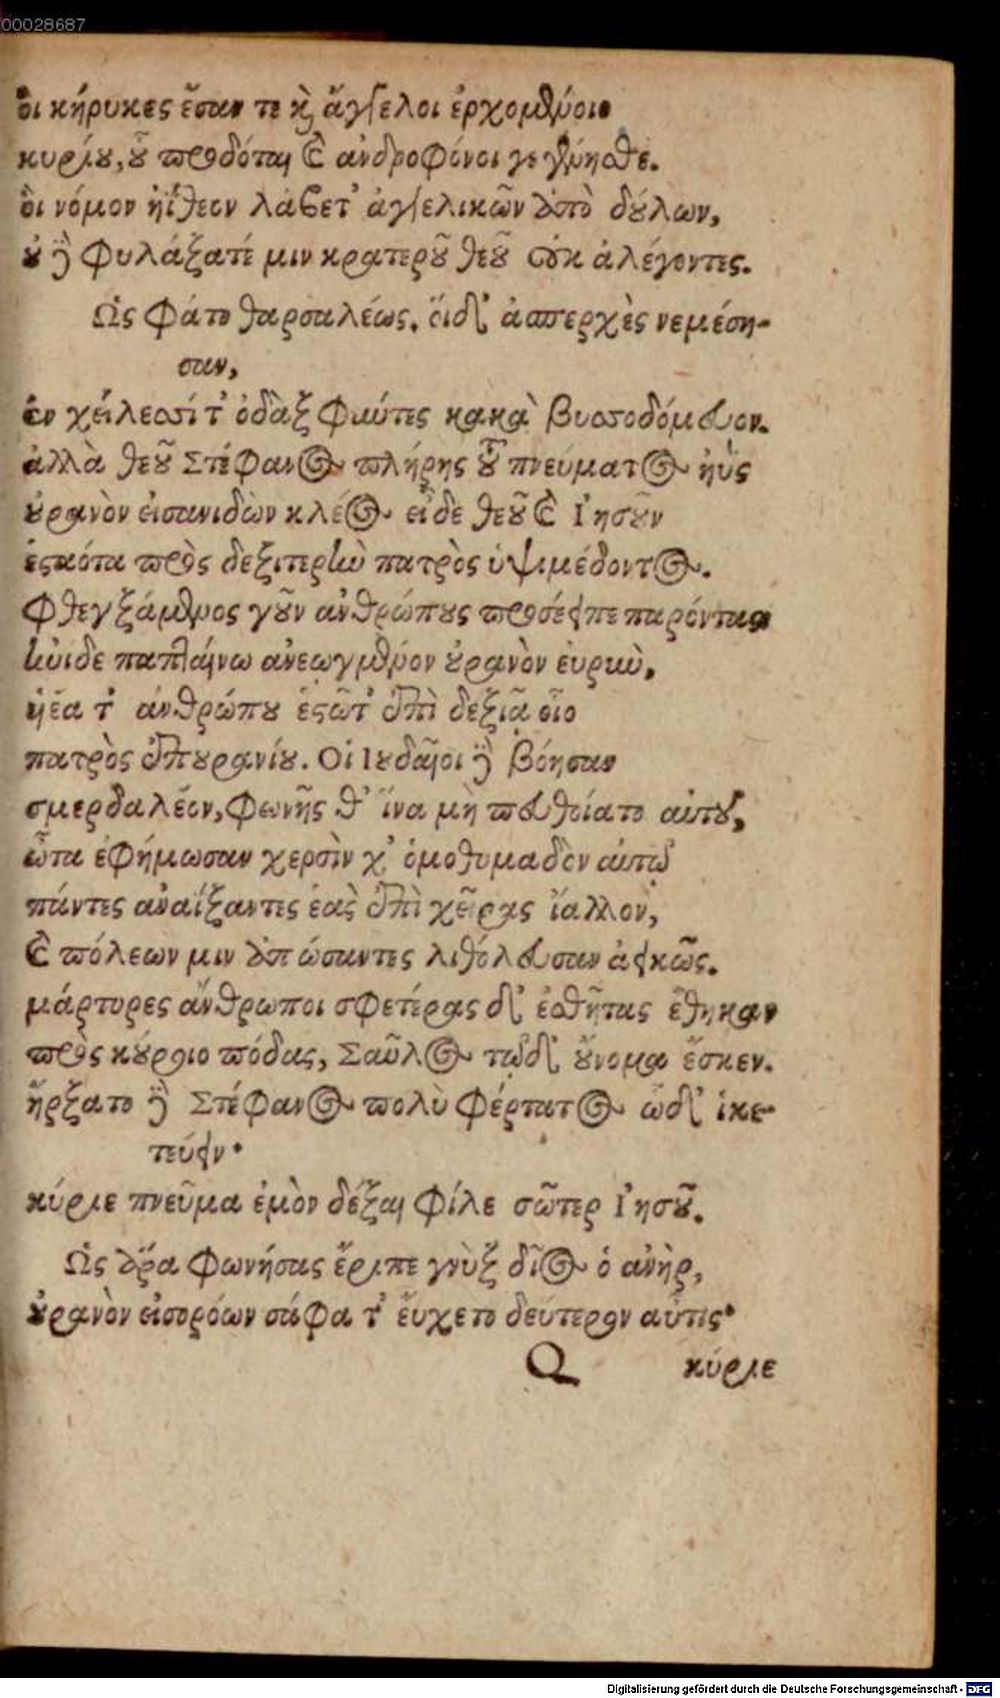 00028687
οἱ κήρυκες ἔσαν τε κὶ ἄγγελοι ἐρχομένοιο
κυρίου, οὗ προδόται καὶ ἀνδροφόνοι γεγένησθε.
οἳ νόμον ἠΐθεον λάβετ᾽ ἀγγελικῶν ὑπὸ δούλων,
οὐ δὲ φυλάξατέ μιν κρατεροῦ θεοῦ οὐκ ἀλέγοντες.
Ὣς φάτο θαρσαλέως. οἵδ᾽ ἀσπερχὲς νεμέση-
σαν,
ἐν χείλεσί τ᾽ ὀδὰξ φαύτες κακὰ βυσοδόμευον.
ἀλλὰ θεοῦ Στέφανος πλήρης τοῦ πνεύματος ἠῢς
οὐρανὸν εἰσανιδὼν κλέος εἶδε θεοῦ καὶ Ἰησοῦν
ἑστότα πρὸς δεξιτερὴν πατρὸς ὑψιμέδοντος.
φθεγξάμενος γοῦν ἀνθρώπους προσέειπε παρόντας
ἠνίδε παπταίνω ἀνεωγμένον οὐρανὸν εὐρὺν,
ἠέα τ᾽ ἀνθρώπου ἑστῶτ᾽ ἐπὶ δεξιᾷ οἷο
πατρὸς ἐπουρανίου. Οἱ Ἰουδαῖοι δὲ βόησαν
σμερδαλέον, φωνῆς θ᾽ ἵνα μὴ πευθοίατο αὐτοῦ,
ὦτα ἐφήμωσαν χερσὶν χ᾽ ὁμοθυμαδὸν αὐτῷ
πάντες ἀναΐξαντες ἑὰς ἐπὶ χεῖρας ἴαλλον,
καὶ πόλεων μιν ἀπώσαντες λιθόλευσαν ἀεικῶς.
μάρτυρες ἄνθρωποι σφετέρας δ᾽ ἐσθῆτας ἔθηκαν
πρὸς κούροιο πόδας, Σαῦλος τῷδ᾽ οὔνομα ἔσκεν.
ἤρξατο δὲ Στέφανος πολὺ φέρτατος ὧδ᾽ ἱκε-
τεύειν·
κύριε πνεῦμα ἐμὸν δέξαι φίλε σῶτερ Ἰησοῦ.
Ὣς ἄρα φωνήσας ἔριπε γνὺξ δῖος ὁ ἀνὴρ,
οὐρανὸν εἰσορόων σάφα τ᾽ εὔχετο δεύτερον αὖτις·
Q κύριε
Digitalisierung gefördert durch die Deutsche Forschungsgemeinschaft - DFG